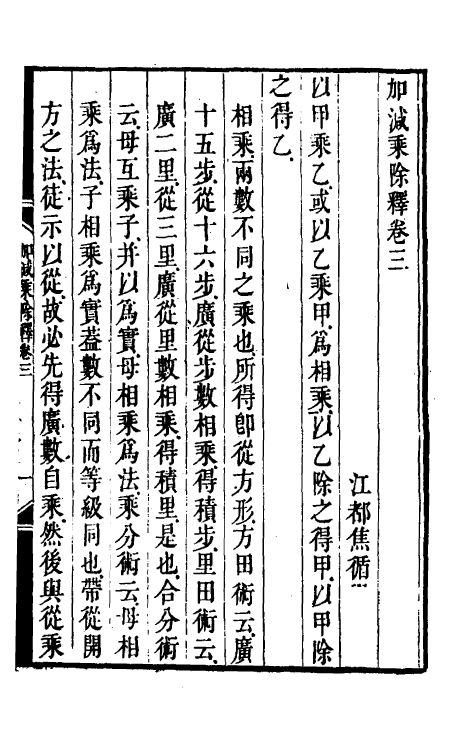 加減乘除釋卷三
江都焦循
以甲乘乙或以乙乘甲爲相乘以乙除之得甲以甲除
之得乙
相乘兩數不同之乘也所得卽從方形方田術云廣
十五步從十六步廣從步數相乘得積步里田術云
廣二里從三里廣從里數相乘得積里是也合分術
云母互乘子并以爲實母相乘爲法乘分術云母相
乘爲法子相乘爲實葢數不同而等級同也帶從開
方之法徒示以從故必先得廣數自乘然後與從乘
加減乘除釋卷三
一